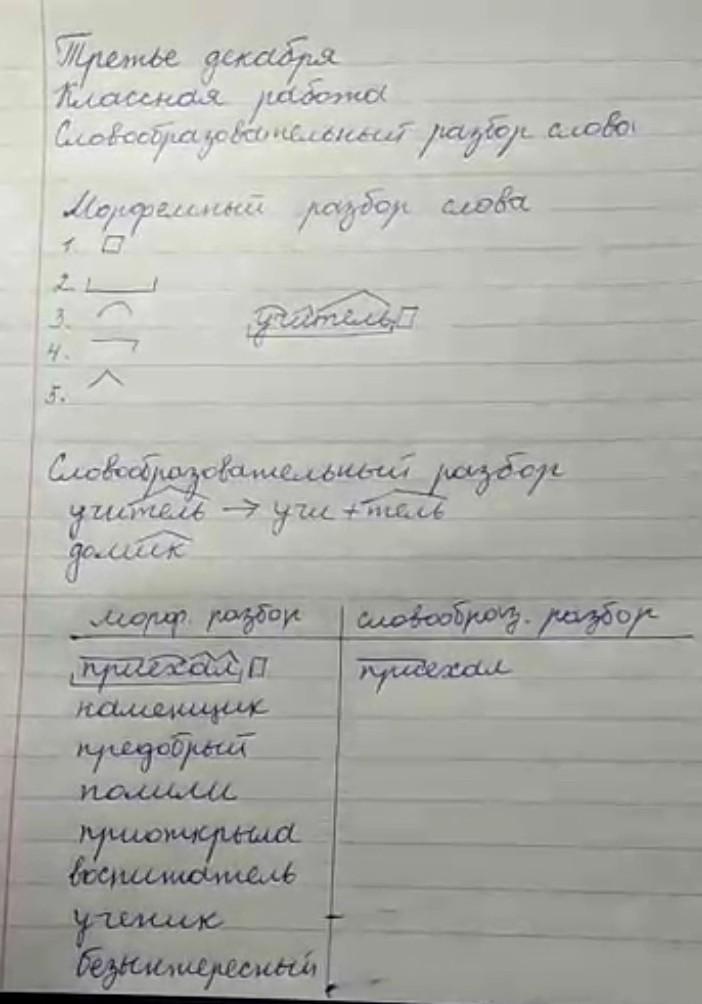 Третье декабря
Классная работа
Словообразовательный разбор слова
Морфемный разбор слова
1.
2.
3. учитель
4.
5.
Словообразовательный разбор
учитель → учи + тель
домик
морф. разбор словообраз. разбор
приехал приехал
каменщик
предобрый
полили
приоткрыла
воспитатель
ученик
безынтересный